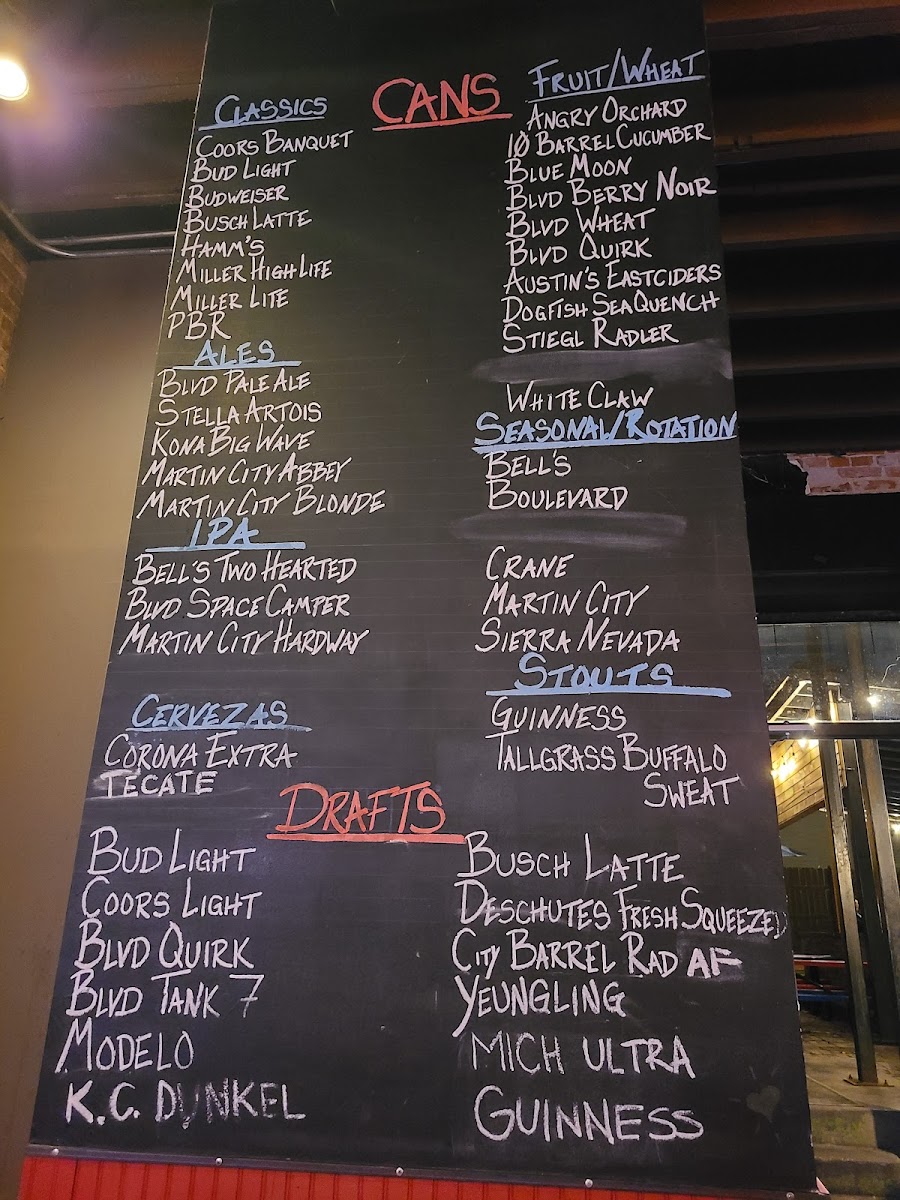 CANS
CLASSICS
COORS BANQUET
BUD LIGHT
BUDWEISER
BUSCH LATTE
HAMM'S
MILLER HIGH LIFE
MILLER LITE
PBR
ALES
BLVD PALE ALE
STELLA ARTOIS
KONA BIG WAVE
MARTIN CITY ABBEY
MARTIN CITY BLONDE
IPA
BELL'S TWO HEARTED
BLVD SPACE CAMPER
MARTIN CITY HARDWAY
CERVEZAS
CORONA EXTRA
TECATE
FRUIT/WHEAT
ANGRY ORCHARD
10 BARREL CUCUMBER
BLUE MOON
BLVD BERRY NOIR
BLVD WHEAT
BLVD QUIRK
AUSTIN'S EASTCIDERS
DOGFISH SEAQUENCH
STIEGL RADLER
WHITE CLAW
SEASONAL/ROTATION
BELL'S
BOULEVARD
CRANE
MARTIN CITY
SIERRA NEVADA
STOUTS
GUINNESS
TALLGRASS BUFFALO
SWEAT
DRAFTS
BUD LIGHT
COORS LIGHT
BLVD QUIRK
BLVD TANK 7
MODELO
K.C. DUNKEL
BUSCH LATTE
DESCHUTES FRESH SQUEEZED
CITY BARREL RAD AF
YEUNGLING
MICH ULTRA
GUINNESS